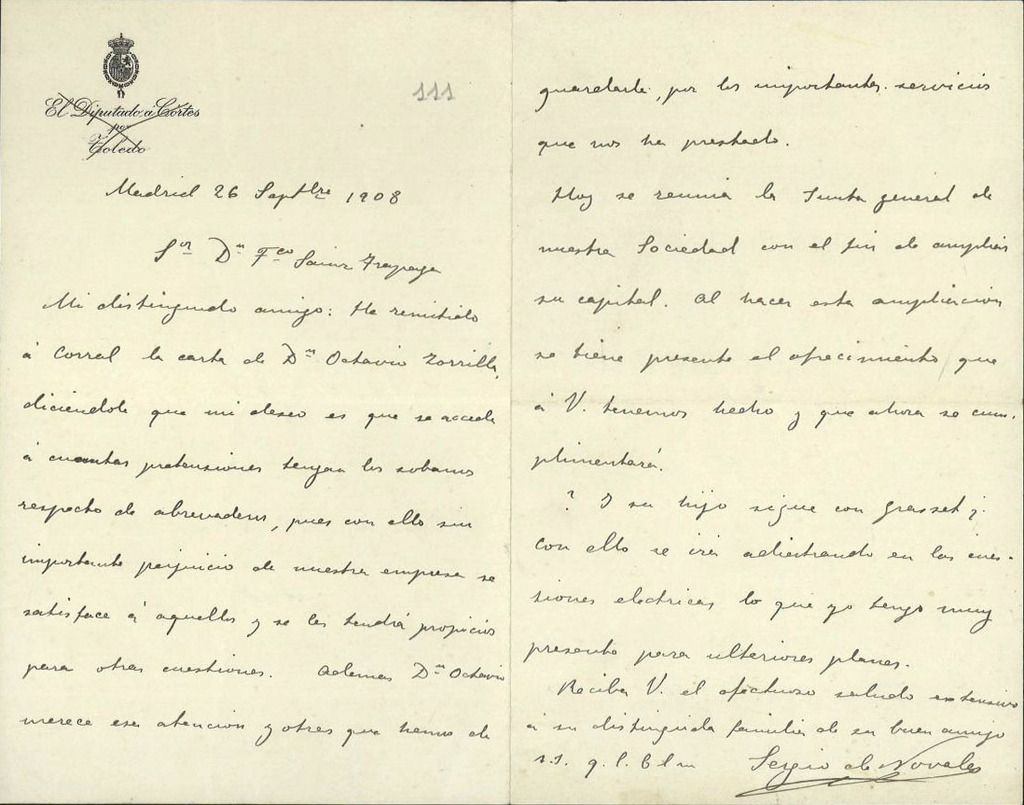 El Diputado á Cortes
por
Toledo
111
Madrid 26 Sepbre 1908
Sor Dn Fco Sainz Trapaga
Mi distinguido amigo: He remitido
á Corral la carta de Dn Octavio Zorrilla,
diciendole que mi deseo es que se acceda
á cuantas pretensiones tengan los sobanos
respecto de abrevaderos, pues con ello sin
importante perjuicio de nuestra empresa se
satisface á aquellos y se les tendrá propicios
para otras cuestiones. Ademas Dn Octavio
merece esa atencion y otras que hemos de
guardarle, por los importantes servicios
que nos ha prestado.
Hoy se reunia la Junta general de
nuestra Sociedad con el fin de ampliar
su capital. Al hacer esta ampliacion
se tiene presente el ofrecimiento que
á V. tenemos hecho y que ahora se cum-
plimentará.
? Y su hijo sigue con Grasset?
Con ello se irá adiestrando en las cues-
tiones electricas lo que yo tengo muy
presente para ulteriores planes.
Reciba V. el afectuoso saludo extensivo
á su distinguida familia de su buen amigo
s.s. q. l. b. l. m
Sergio de Novales